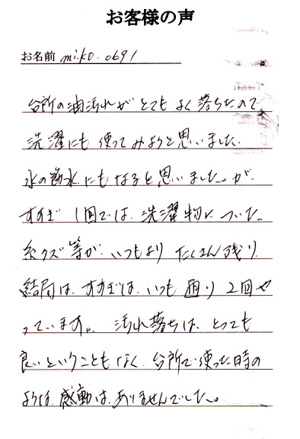 お客様の声
お名前 miko-0691
台所の油汚れがとてもよく落ちたので
洗濯にも使ってみようと思いました。
水の節水にもなると思いました。が、
すすぎ1回では、洗濯物についた
糸クズ等が、いつもよりたくさん残り、
結局は、すすぎは、いつも通り2回や
っています。汚れ落ちは、とっても
良いということもなく、台所で使った時の
ような感動は、ありませんでした。